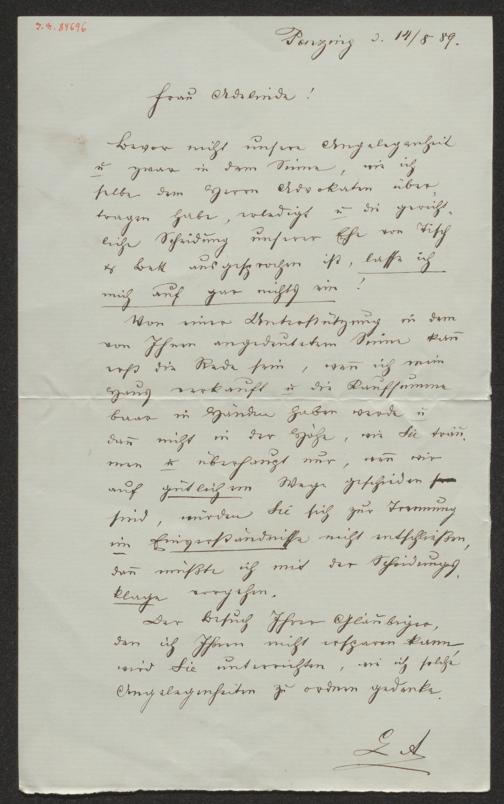 J. N. 84696
Penzing d. 14/8 89.
Frau Adelinde!
Bevor nicht unsere Angelegenheit
u zwar in dem Sinne, wie ich
selbe dem Herrn Advokaten über-
tragen habe, erledigt u die gericht-
liche Scheidung unserer Ehe von Tisch
& Bett ausgesprochen ist, lasse ich
mich auf gar nichts ein!
Von einer Unterstützung in dem
von Ihnen angedeuteten Sinne kann
erst die Rede sein, wenn ich mein
Haus verkauft u die Kaufsumme
baar in Händen haben werde u
dann nicht in der Höhe, wie Sie träu-
men & überhaupt nur, wenn wir
auf gütlichem Wege geschieden
sind, würden Sie sich zur Trennung
im Einverständnisse nicht entschließen,
dann müßte ich mit der Scheidungs-
klage vorgehen.
Der Besuch Ihrer Gläubiger,
den ich Ihnen nicht ersparen kann
wird Sie unterrichten, wie ich solche
Angelegenheiten zu ordnen gedenke.
L A